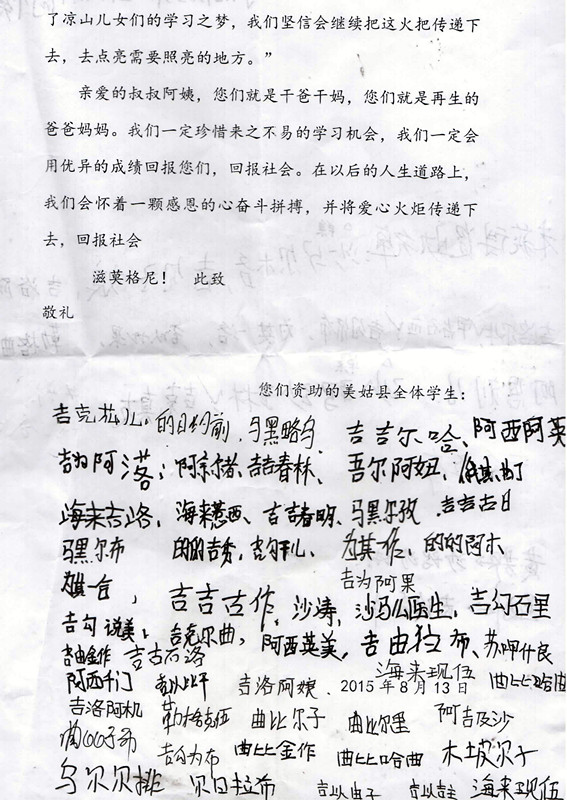 了凉山儿女们的学习之梦，我们坚信会继续把这火把传递下
去，去点亮需要照亮的地方。”
亲爱的叔叔阿姨，您们就是干爸干妈，您们就是再生的
爸爸妈妈。我们一定珍惜来之不易的学习机会，我们一定会
用优异的成绩回报您们，回报社会。在以后的人生道路上，
我们会怀着一颗感恩的心奋斗拼搏，并将爱心火炬传递下
去，回报社会
滋莫格尼！ 此致
敬礼
您们资助的美姑县全体学生：
吉克 的日约前 马黑略乌 吉吉尔哈、阿西阿英
吉为阿洛； 吉吉春林、 吾尔阿妞、
海来吉路， 海来惹西、 吉吉春明、 马黑尔孜 吉吉古日
马黑尔布 的的吉秀， 为其作， 的的阿木
吉为阿果
吉吉古作， 沙涛， 沙马么医生， 吉勾石里
吉勾说美； 吉克尔曲， 阿西英美， 吉由拉布、
吉由金作 吉古石洛 海来现伍
阿西千门 吉洛阿婉、 2015年8月13日 曲比比哈曲
吉洛阿机 勒格克伍 曲比尔子 曲比尔里 阿吉及沙
吉勾为布 曲比金作 曲比比哈曲 木坡尔子
乌尔贝排 贝日拉布 吉以由子 海来现伍